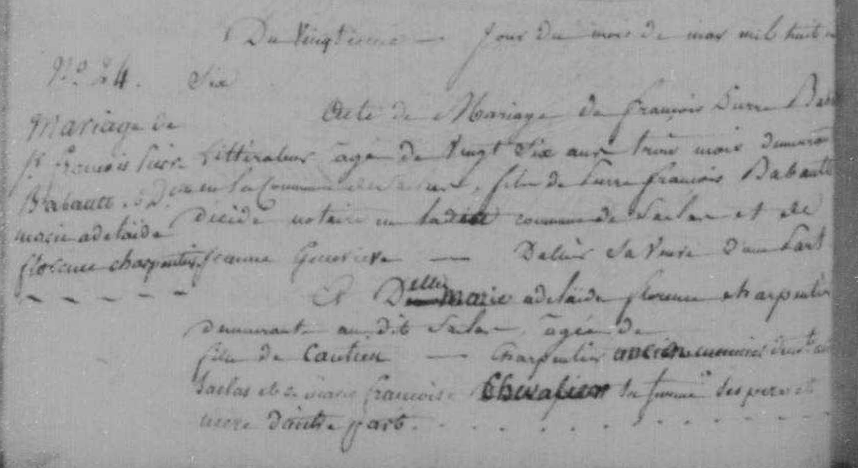 Du Vingtieme — Jour du mois de mars mil huit
Six
No 24.
Mariage de
Sr françois Pierre
Babault. & D.
marie adelaide
florence charpentier
Acte de Mariage de françois Pierre Bab
Littérateur âgé de Vingt Six ans trois mois demeurant
en la Commune de, fils de Pierre françois Babault
Décédé notaire en ladite commune de Saclas et de
jeanne Genevieve — Dallier Sa Veuve d'une Part
Et Delle marie adelaide florence charpentier
demeurante au dit Saclas, âgée de
fille de Cantien — Charpentier ancien
Saclas et de marie françoise Chevalier Sa femme Ses pere et
mere d'autre part.